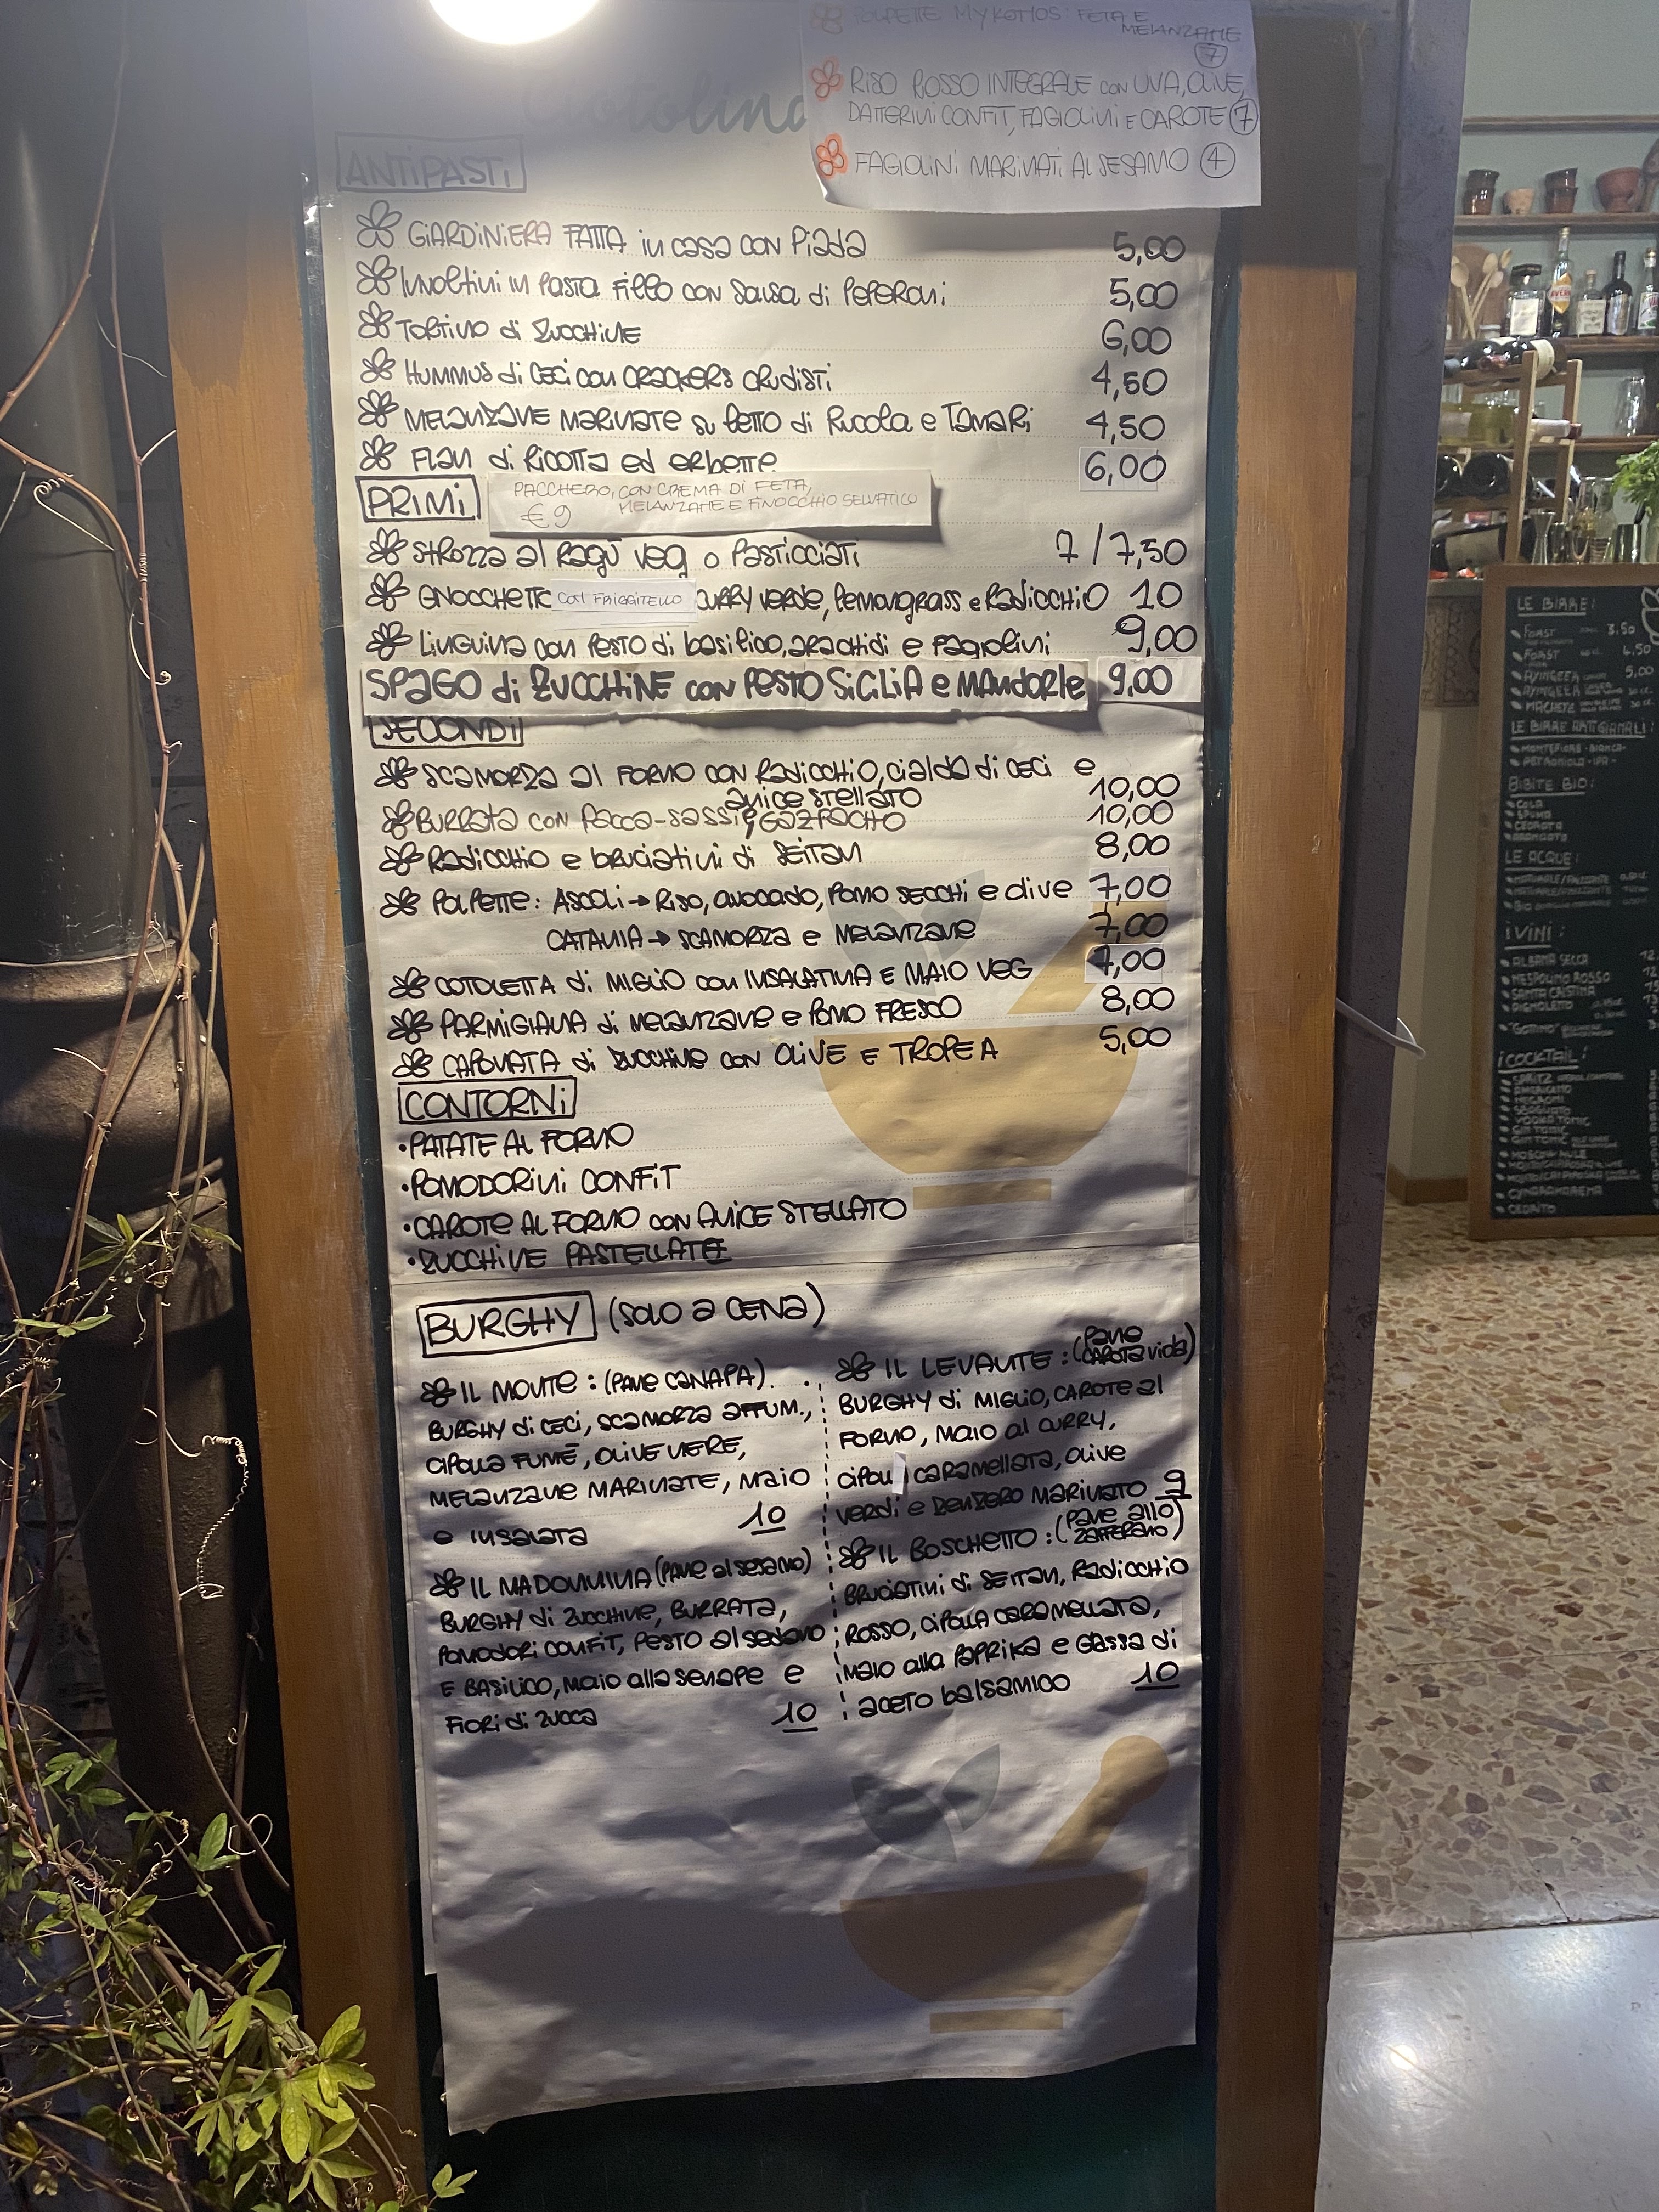 POLPETTE MYKONOS: FETA E
MELANZANE
7
RISO ROSSO INTEGRALE con UVA, OLIVE,
DATTERINI CONFIT, FAGIOLINI E CAROTE 7
FAGIOLINI MARINATI AL SESAMO 4
Ciotolina
ANTIPASTI
GIARDINIERA FATTA in casa con Piada 5,00
INVOLTINI IN PASTA FILLO CON SALSA di PEPERONI 5,00
TORTINO di ZUCCHINE 6,00
HUMMUS di CECI con CRACKERS CRUDISTI 4,50
MELANZANE MARINATE su letto di Rucola e TAMARI 4,50
FLAN di RICOTTA ed erbette 6,00
PRIMI
PACCHERO, CON CREMA DI FETA,
MELANZANE E FINOCCHIO SELVATICO
€ 9
STROZZA al RAGÙ VEG o PASTICCIATI 7/7,50
GNOCCHETTI CON FRIGGITELLO CURRY VERDE, LEMONGRASS e RADICCHIO 10
LINGUINA con PESTO di basilico, arachidi e FAGIOLINI 9,00
SPAGO di ZUCCHINE con PESTO SICILIA e MANDORLE 9,00
SECONDI
SCAMORZA al FORNO CON RADICCHIO, cialda di CECI e
anice STELLATO 10,00
BURRATA CON PACCA-SASSI e GAZPACHO 10,00
RADICCHIO e bruciatini di SEITAN 8,00
POLPETTE: ASCOLI → RISO, avocado, POMO SECCHI e olive 7,00
CATANIA → SCAMORZA e MELANZANE 7,00
COTOLETTA di MIGLIO con INSALATINA E MAIO VEG 7,00
PARMIGIANA di MELANZANE e POMO FRESCO 8,00
CAPONATA di ZUCCHINE con OLIVE E TROPEA 5,00
CONTORNI
•PATATE AL FORNO
•POMODORINI CONFIT
•CAROTE AL FORNO con ANICE STELLATO
•ZUCCHINE PASTELLATE
BURGHY (SOLO a CENA)
IL MONTE: (PANE CANAPA).
BURGHY di CECI, SCAMORZA AFFUM.,
CIPOLLA FUMÉ, OLIVE NERE,
MELANZANE MARINATE, MAIO
e INSALATA 10
IL MADONNINA (PANE al SESAMO)
BURGHY di ZUCCHINE, BURRATA,
POMODORI CONFIT, PESTO al sedano
E BASILICO, MAIO alla senape e
FIORI di ZUCCA 10
IL LEVANTE: (PANE
CAROTA viola)
BURGHY di MIGLIO, CAROTE al
FORNO, MAIO al CURRY,
CIPOLL caramellata, olive
verdi e ZENZERO MARINATO 9
IL BOSCHETTO: (PANE allo
ZAFFERANO)
BRUCIATINI di SEITAN, RADICCHIO
ROSSO, CIPOLLA CARAMELLATA,
MAIO alla PAPRIKA e GLASSA di
aceto balsamico 10
LE BIRRE:
FORST 3.50
FORST 4.50
AYINGER 5,00
AYINGER
LE BIRRE ARTIGIANALI:
MONTEFIORE -BIANCA-
PETRONIOLA -IPA-
BIBITE BIO:
COLA
SPUMA
CEDRATA
ARANCIATA
LE ACQUE:
I VINI:
ALBANA SECCA
NESPOLINO ROSSO
SANTA CRISTINA
PIGNOLETO
I COCKTAIL:
SPRITZ
AMERICANO
NEGRONI
SBAGLIATO
VODKA TONIC
GIN TONIC
GIN TONIC
MOSCOW MULE